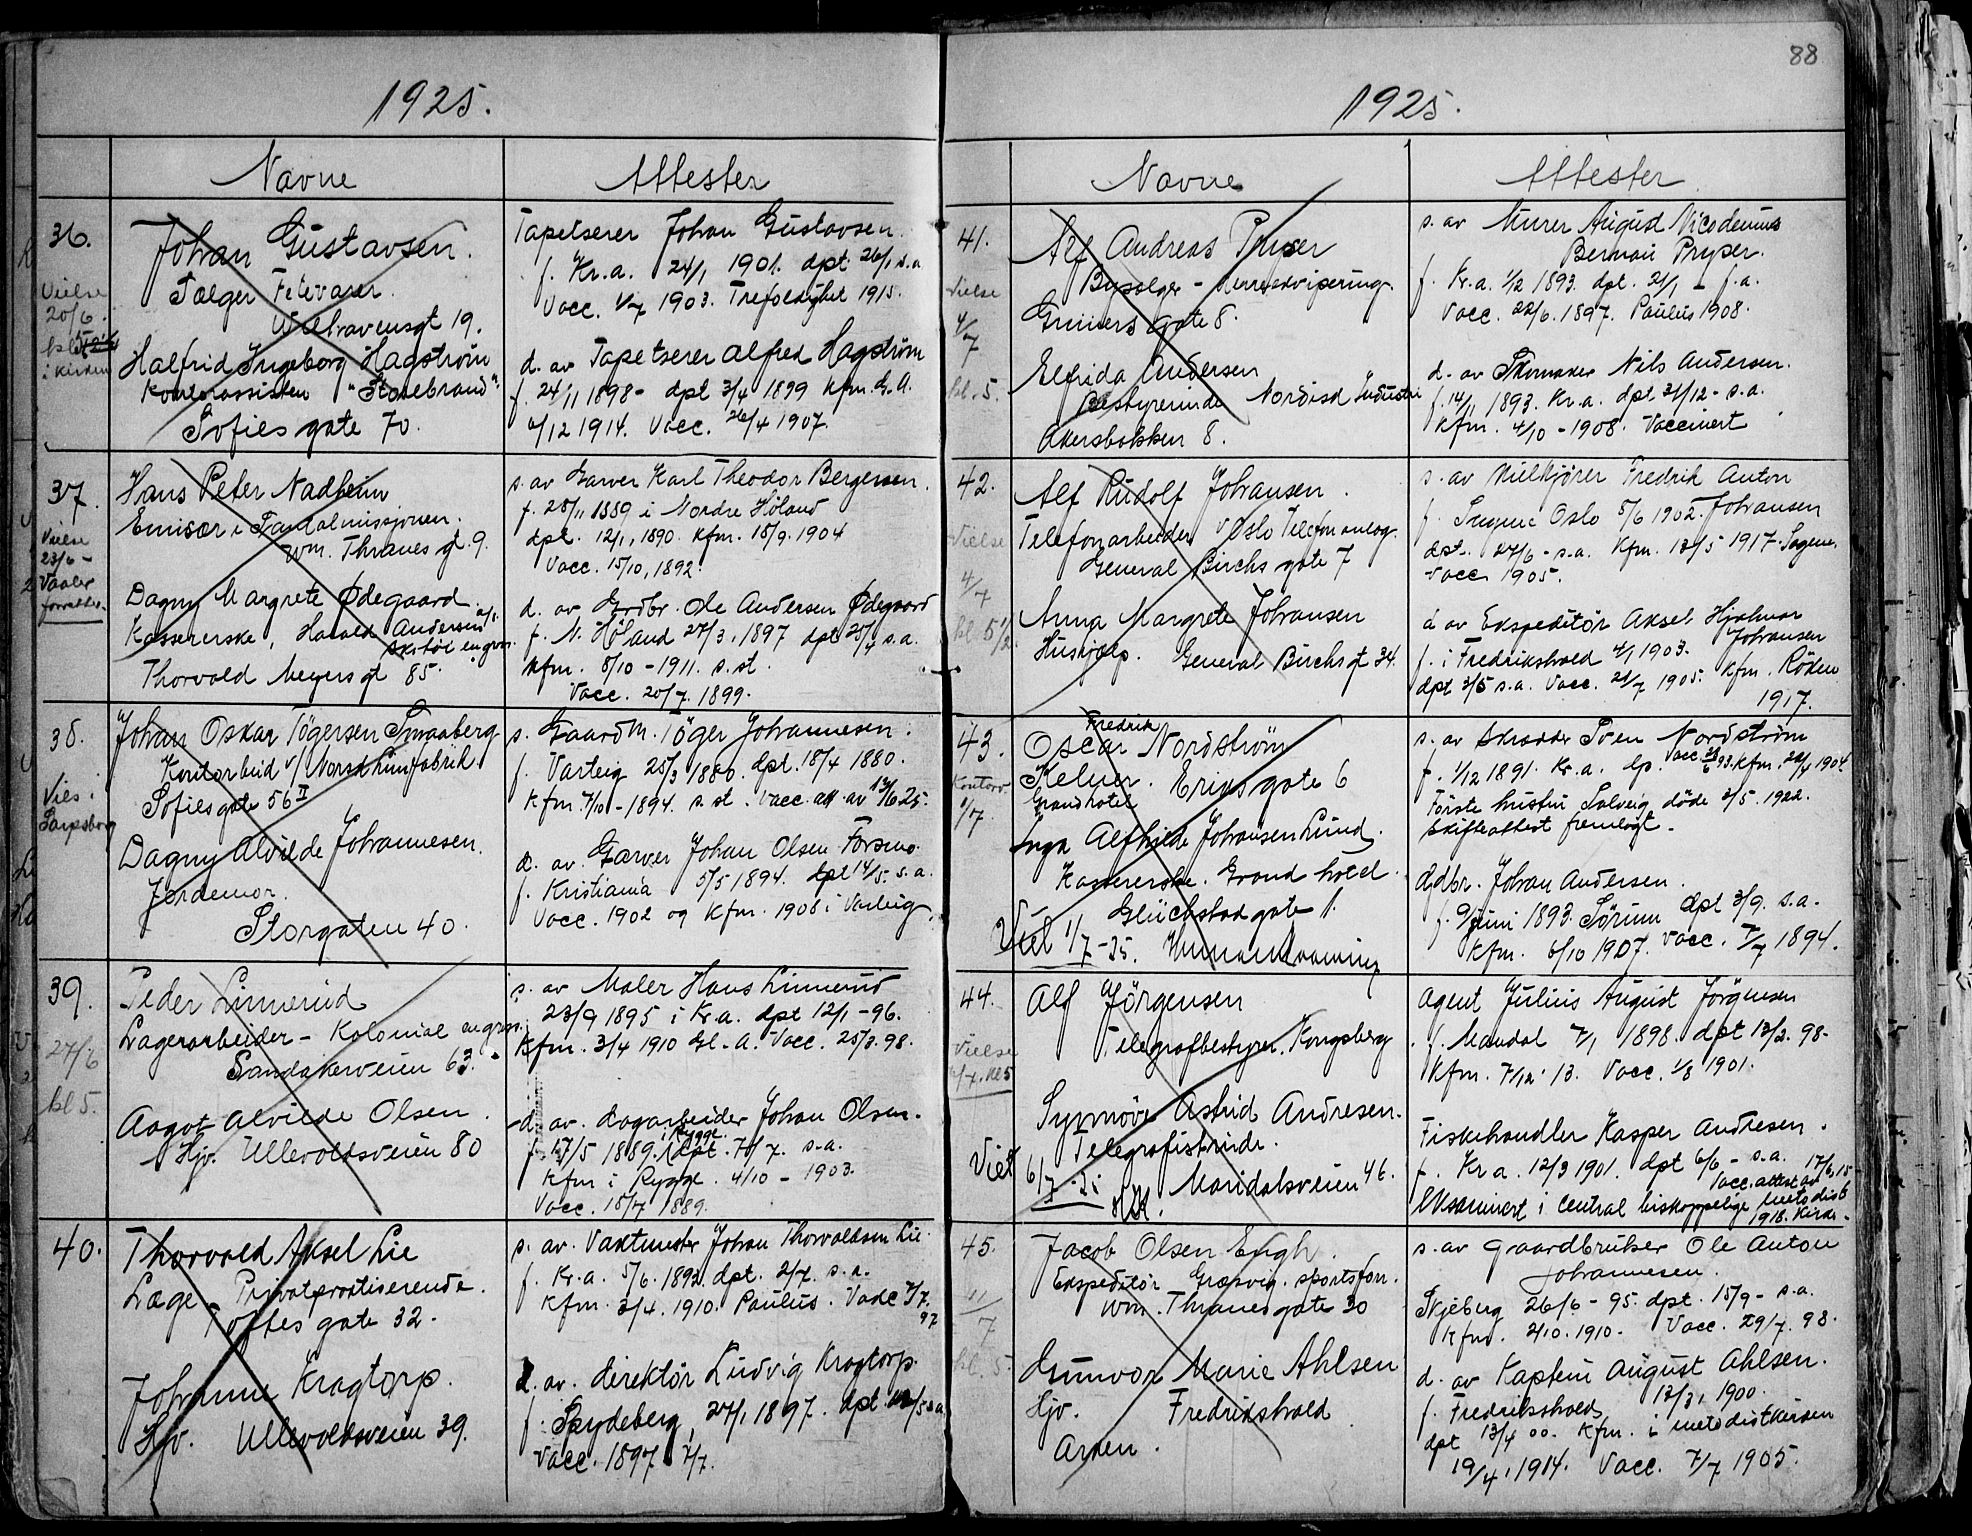 88
1925.
Navne
Attester
36.
Vielse
20/6.
i kirken
Johan Gustavsen.
Selger Fetevarer.
Waltravensgt 19.
Halfrid Ingeborg Hagström
Kontorassisten "Storebrand".
Sofies gate 70.
Tapetserer Johan Gustavsen.
f. Kr.a. 24/1 1901. dpt 26/1 s.a
Vacc. 1/7 1903. Trefoldighet 1915.
d. av Tapetserer Alfred Hagström
f. 24/11 1898 - dpt 3/4 1899 Kfm. G. A.
6/12 1914. Vacc. 26/4 1907.
37.
Vielse
23/6 -
Vaaler
forretter.
Hans Peter Nadheim
Emisær i Santalmissjonen.
Wm. Thranes gt. 9.
Dagny Margrete Ødegaard
Kassererske, Harald Andersen a/s
Skotøi engros.
Thorvald Meyers gt 85.
s. av Garver Karl Theodor Bergersen.
f. 25/11 1889 i Nordre Höland
dpt. 12/1, 1890. Kfm. 18/9. 1904
Vacc. 15/10, 1892.
d. av Grdbr. Ole Andersen Ødegaard
f. N. Höland 27/3, 1897 dpt 25/4 s.a.
Kfm. 8/10 - 1911. s. st.
Vacc. 20/7. 1899.
38.
Vies i
Sarpsborg
Johan Oskar Tögersen Smaaberg
Kontorbud v/ Norsk Linfabrik
Sofiesgate 56 II
Dagny Alvilde Johannesen.
Jordemor.
Storgaten 40.
s. Gaardm. Töger Johannesen.
f. Varteig 25/3 1880. dpt. 18/4 1880.
Kfm 7/10 - 1894. s. st. Vacc. att av 13/6 25.
d. av. Garver Johan Olsen Forsmo.
f. Kristiania 5/5 1894. dpt 14/5. s.a.
Vacc. 1902 og Kfm. 1908 i Varteig.
39.
27/6
kl 5.
Peder Linnerud
Lagerarbeider - Kolonial engros.
Sandakerveien 63.
Aagot Alvilde Olsen.
Hjv. Ullevoldsveien 80
s. av Maler Hans Linnerud
23/9 1895 i Kr.a. dpt 12/1 - 96.
Kfm. 3/4 1910 Gl. A. Vacc. 25/3. 98.
d. av. dagarbeider Johan Olsen.
f. 17/5 1889. i Rygge. dpt. 7/7. s.a.
Kfm i Rygge. 4/10 - 1903.
Vacc. 18/7 1889.
40.
Thorvald Aksel Lie
Læge, Privatpraktiserende.
Toftes gate 32.
Johanne Kragtorp.
Hjv. Ullevoldsveien 39.
s. av. Vaktmester Johan Thorvaldsen Lie.
f. Kr.a. 5/6. 1892. dpt. 2/7. s.a.
Kfm. 3/4. 1910. Paulus. Vacc 7/7. 97
d. av. direktör Ludvig Kragtorp.
f. Spydeberg, 27/1 1897. dpt /5 s.a
Vacc. 1897 7/7.
1925.
Navne
Attester
41.
Vielse
4/7
kl. 5.
Alf Andreas Pryser
Byselger - Herreekvipering
Grüners gate 8.
Elfrida Andersen
Bestyrerinde Nordisk Industri
Akersbakken 8.
s. av Murer August Nicodemus
Bernau Pryser.
f. Kr.a. 1/2 1893. dpt. 21/1 - f.a.
Vacc. 22/6. 1897. Paulus 1908.
d. av Skomaker Nils Andersen.
f. 14/11 1893. Kr.a. dpt 31/12 - s.a.
Kfm. 4/10 - 1908. Vaccinert
42.
Vielse
4/7
kl 5 1/2
Alf Rudolf Johansen.
Telefonarbeider v Oslo Telefonanleg.
General Birchs gate 7
Anna Margrete Johansen
Hushjælp. General Birchs gt 34.
s. av Melkjører Fredrik Anton
Johansen
f. Sagene Oslo 5/6 1902.
dpt. 27/6 - s.a. Kfm. 13/5 1917 - Sagene.
Vacc 1905.
d. av Ekspeditör Aksel Hjalmar
Johansen
f. i Fredrikshald 4/1 1903.
dpt 3/5 s.a. Vacc. 21/7 1905. Kfm. Röken
1917.
43.
Kontoret
1/7
Fredrik
Oscar Nordström
Kelner. Eriks gate 6
Grand hotel
Inga Alfhilde Johansen Lund.
Kassererske. Grand hotel
Glückstad gate 1.
Viet 1/7 - 25.
s. av Skrædder Sven Nordström
f. 1/12 1891. Kr.a. dp. Vacc 93. Kfm. 22/4 1904
Förste hustru Solveig döde 2/5. 1922.
Skifteattest fremlagt.
Gdbr. Johan Andersen.
f. 9/juni 1893. Sörum dpt 3/9. s.a.
Kfm. 6/10 1907. Vacc. 7/7 1894.
44.
Vielse
6/7. kl 5
Alf Jörgensen
Telegrafbestyrer. Kongsberg
Synnöve Astrid Andresen.
Telegrafistinde.
Viet 6/7 - 25 Maridalsveien 46.
Agent Julius August Jörgensen
f. Mandal 7/1 1898. dpt 13/2. 98.
Kfm. 7/12. 13. Vacc. 1/8 1901.
Fiskehandler Kasper Andresen.
f. Kr a. 12/3 1901. dpt 6/6 - s.a.
Vacc. attest av 17/6, 15
Eksaminert i Central biskoppelige metodist
1918. Kirke.
45.
11/7
kl. 5.
Jacob Olsen Engh.
Ekspeditör Gresvig. sportsforr.
Wm. Thranes gate 30
Gunvor Marie Ahlsen
Hjv. Fredrikshald
Arven.
s. av gaardbruker Ole Anton
Johannesen.
Skjeberg 26/6 - 95. dpt. 15/9 - s.a.
Kfm. 2/10. 1910. Vacc. 29/7. 98.
d. av Kaptein August Ahlsen.
f. Fredrikshald, 13/3, 1900.
dpt 13/4 00. Kfm. i metodistkirken
19/4, 1914. Vacc. 7/7 1905.